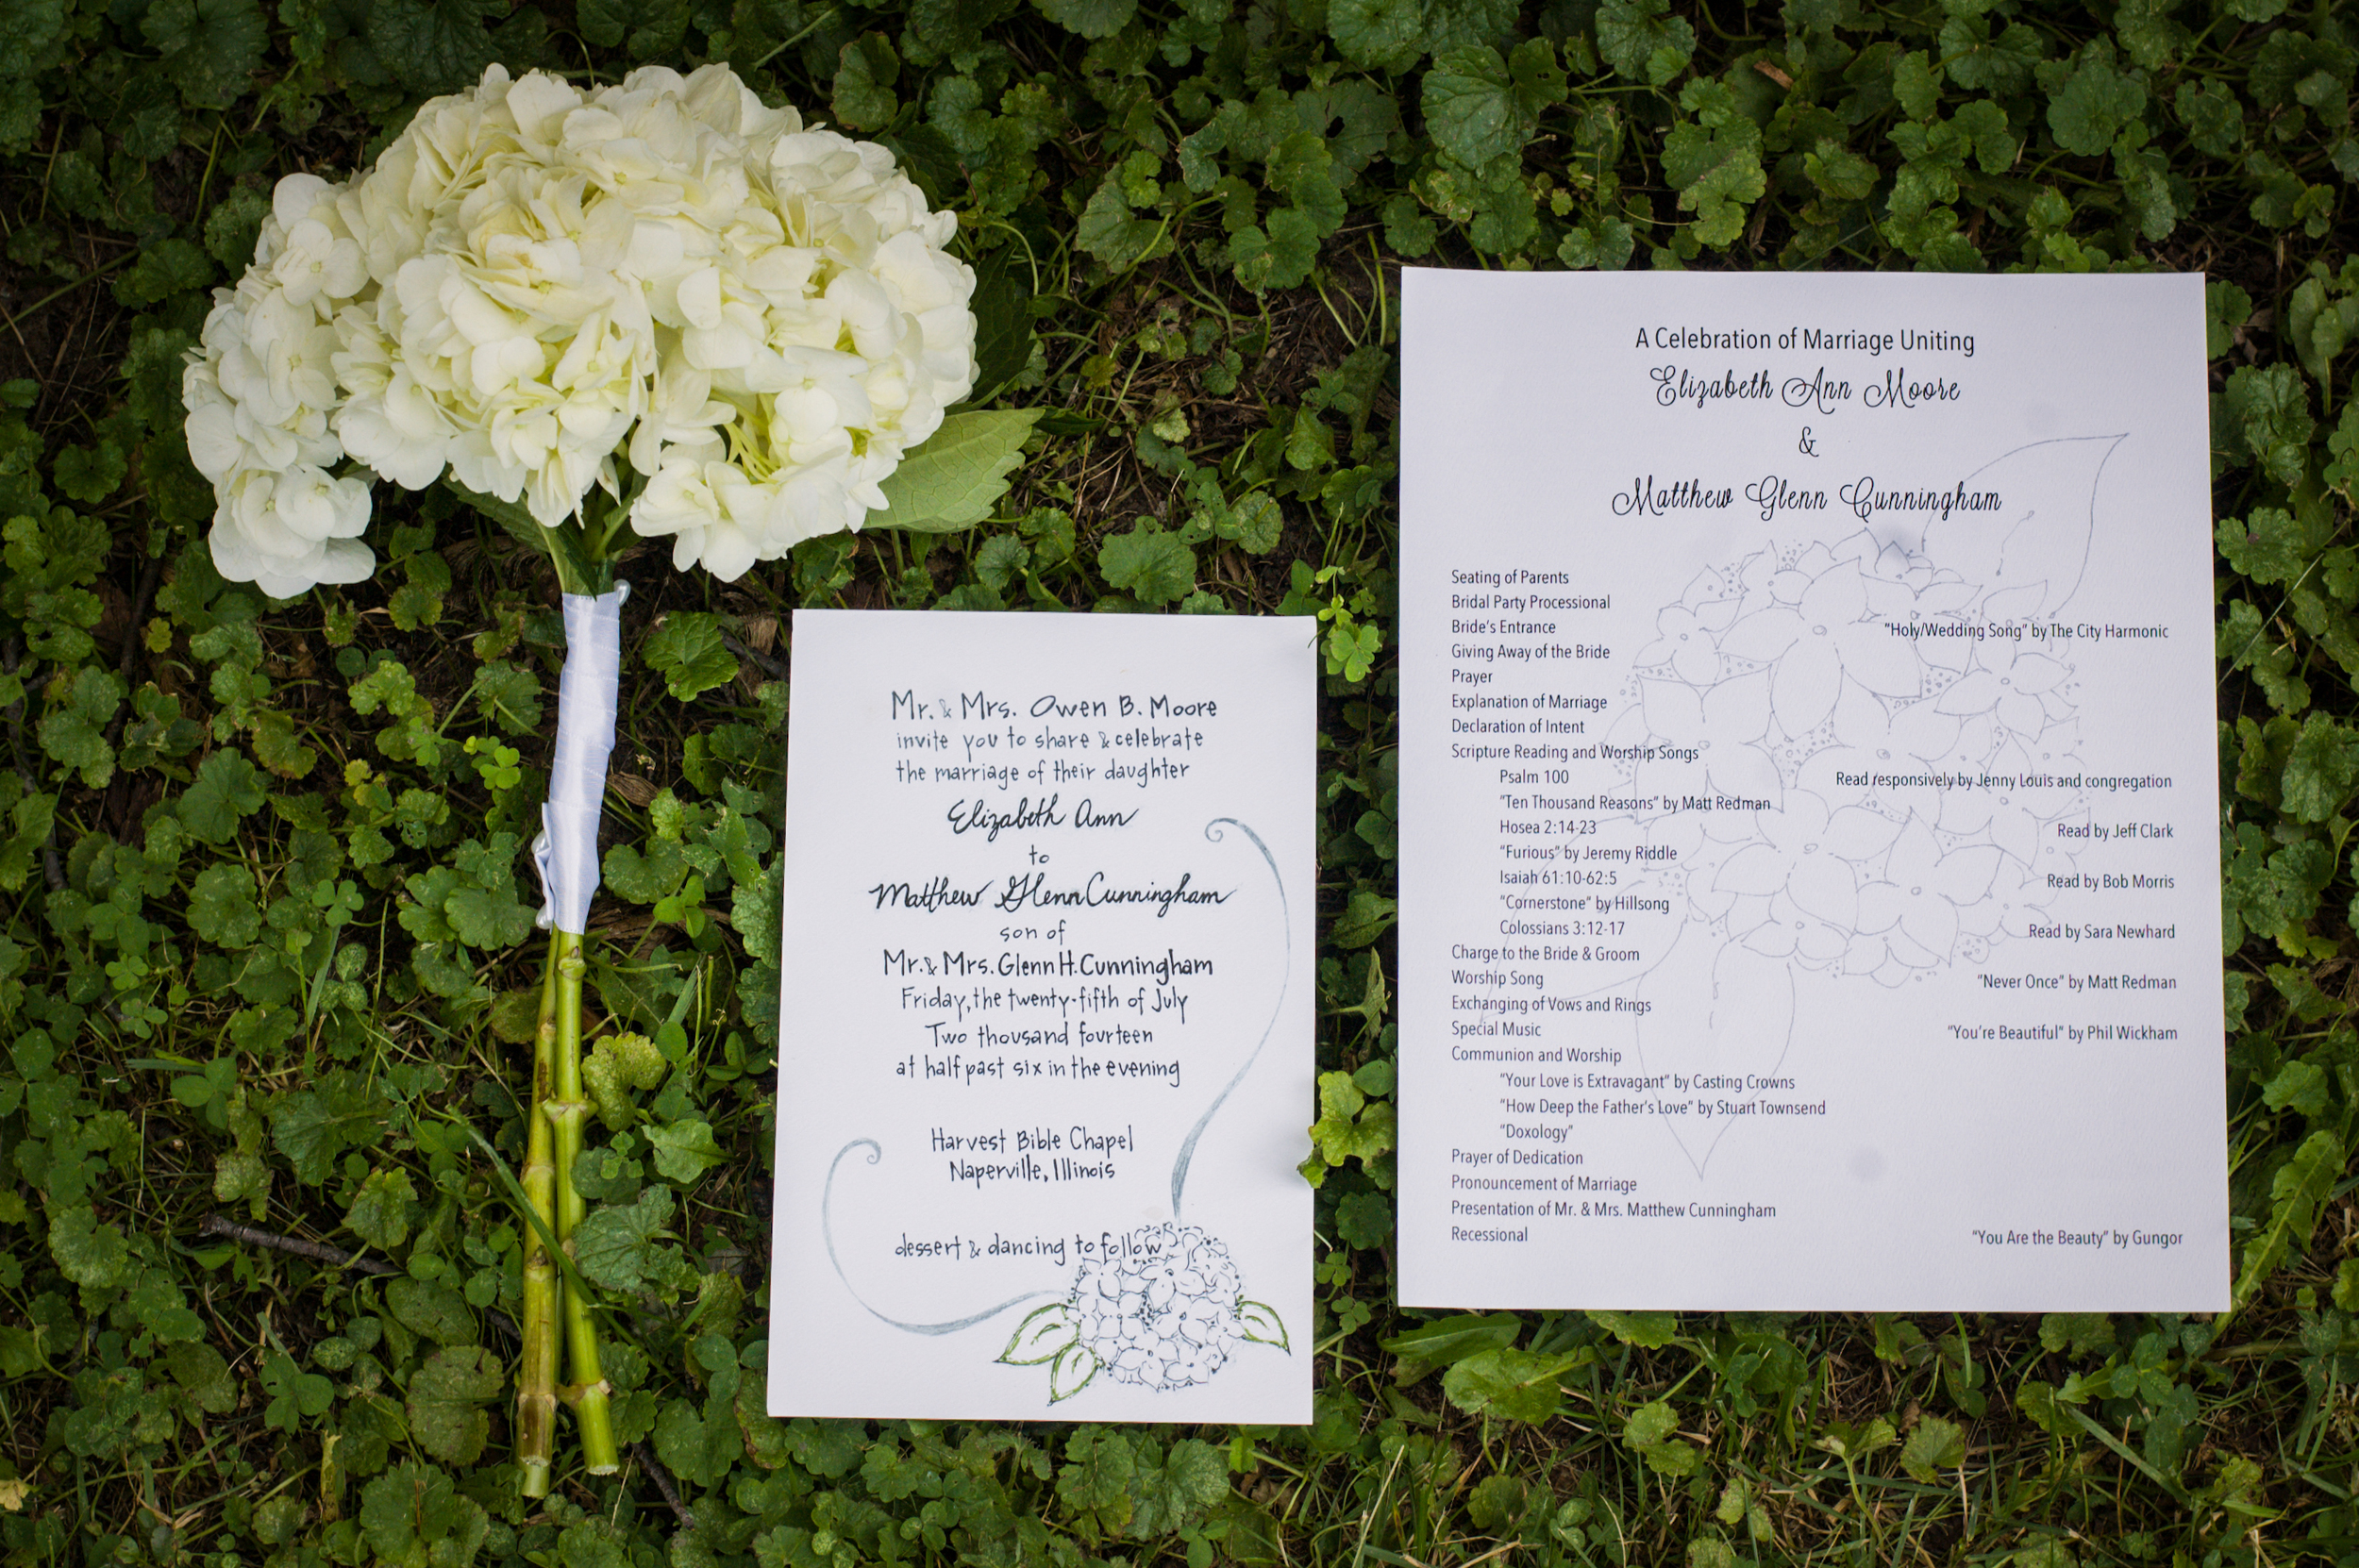 Mr. & Mrs. Owen B. Moore
invite you to share & celebrate
the marriage of their daughter
Elizabeth Ann
to
Matthew Glenn Cunningham
son of
Mr. & Mrs. Glenn H. Cunningham
Friday, the twenty-fifth of July
Two thousand fourteen
at half past six in the evening
Harvest Bible Chapel
Naperville, Illinois
dessert & dancing to follow
A Celebration of Marriage Uniting
Elizabeth Ann Moore
&
Matthew Glenn Cunningham
Seating of Parents
Bridal Party Processional
Bride's Entrance "Holy/Wedding Song" by The City Harmonic
Giving Away of the Bride
Prayer
Explanation of Marriage
Declaration of Intent
Scripture Reading and Worship Songs
Psalm 100 Read responsively by Jenny Louis and congregation
"Ten Thousand Reasons" by Matt Redman
Hosea 2:14-23 Read by Jeff Clark
"Furious" by Jeremy Riddle
Isaiah 61:10-62:5 Read by Bob Morris
"Cornerstone" by Hillsong
Colossians 3:12-17 Read by Sara Newhard
Charge to the Bride & Groom
Worship Song "Never Once" by Matt Redman
Exchanging of Vows and Rings
Special Music "You're Beautiful" by Phil Wickham
Communion and Worship
"Your Love is Extravagant" by Casting Crowns
"How Deep the Father's Love" by Stuart Townsend
"Doxology"
Prayer of Dedication
Pronouncement of Marriage
Presentation of Mr. & Mrs. Matthew Cunningham
Recessional "You Are the Beauty" by Gungor